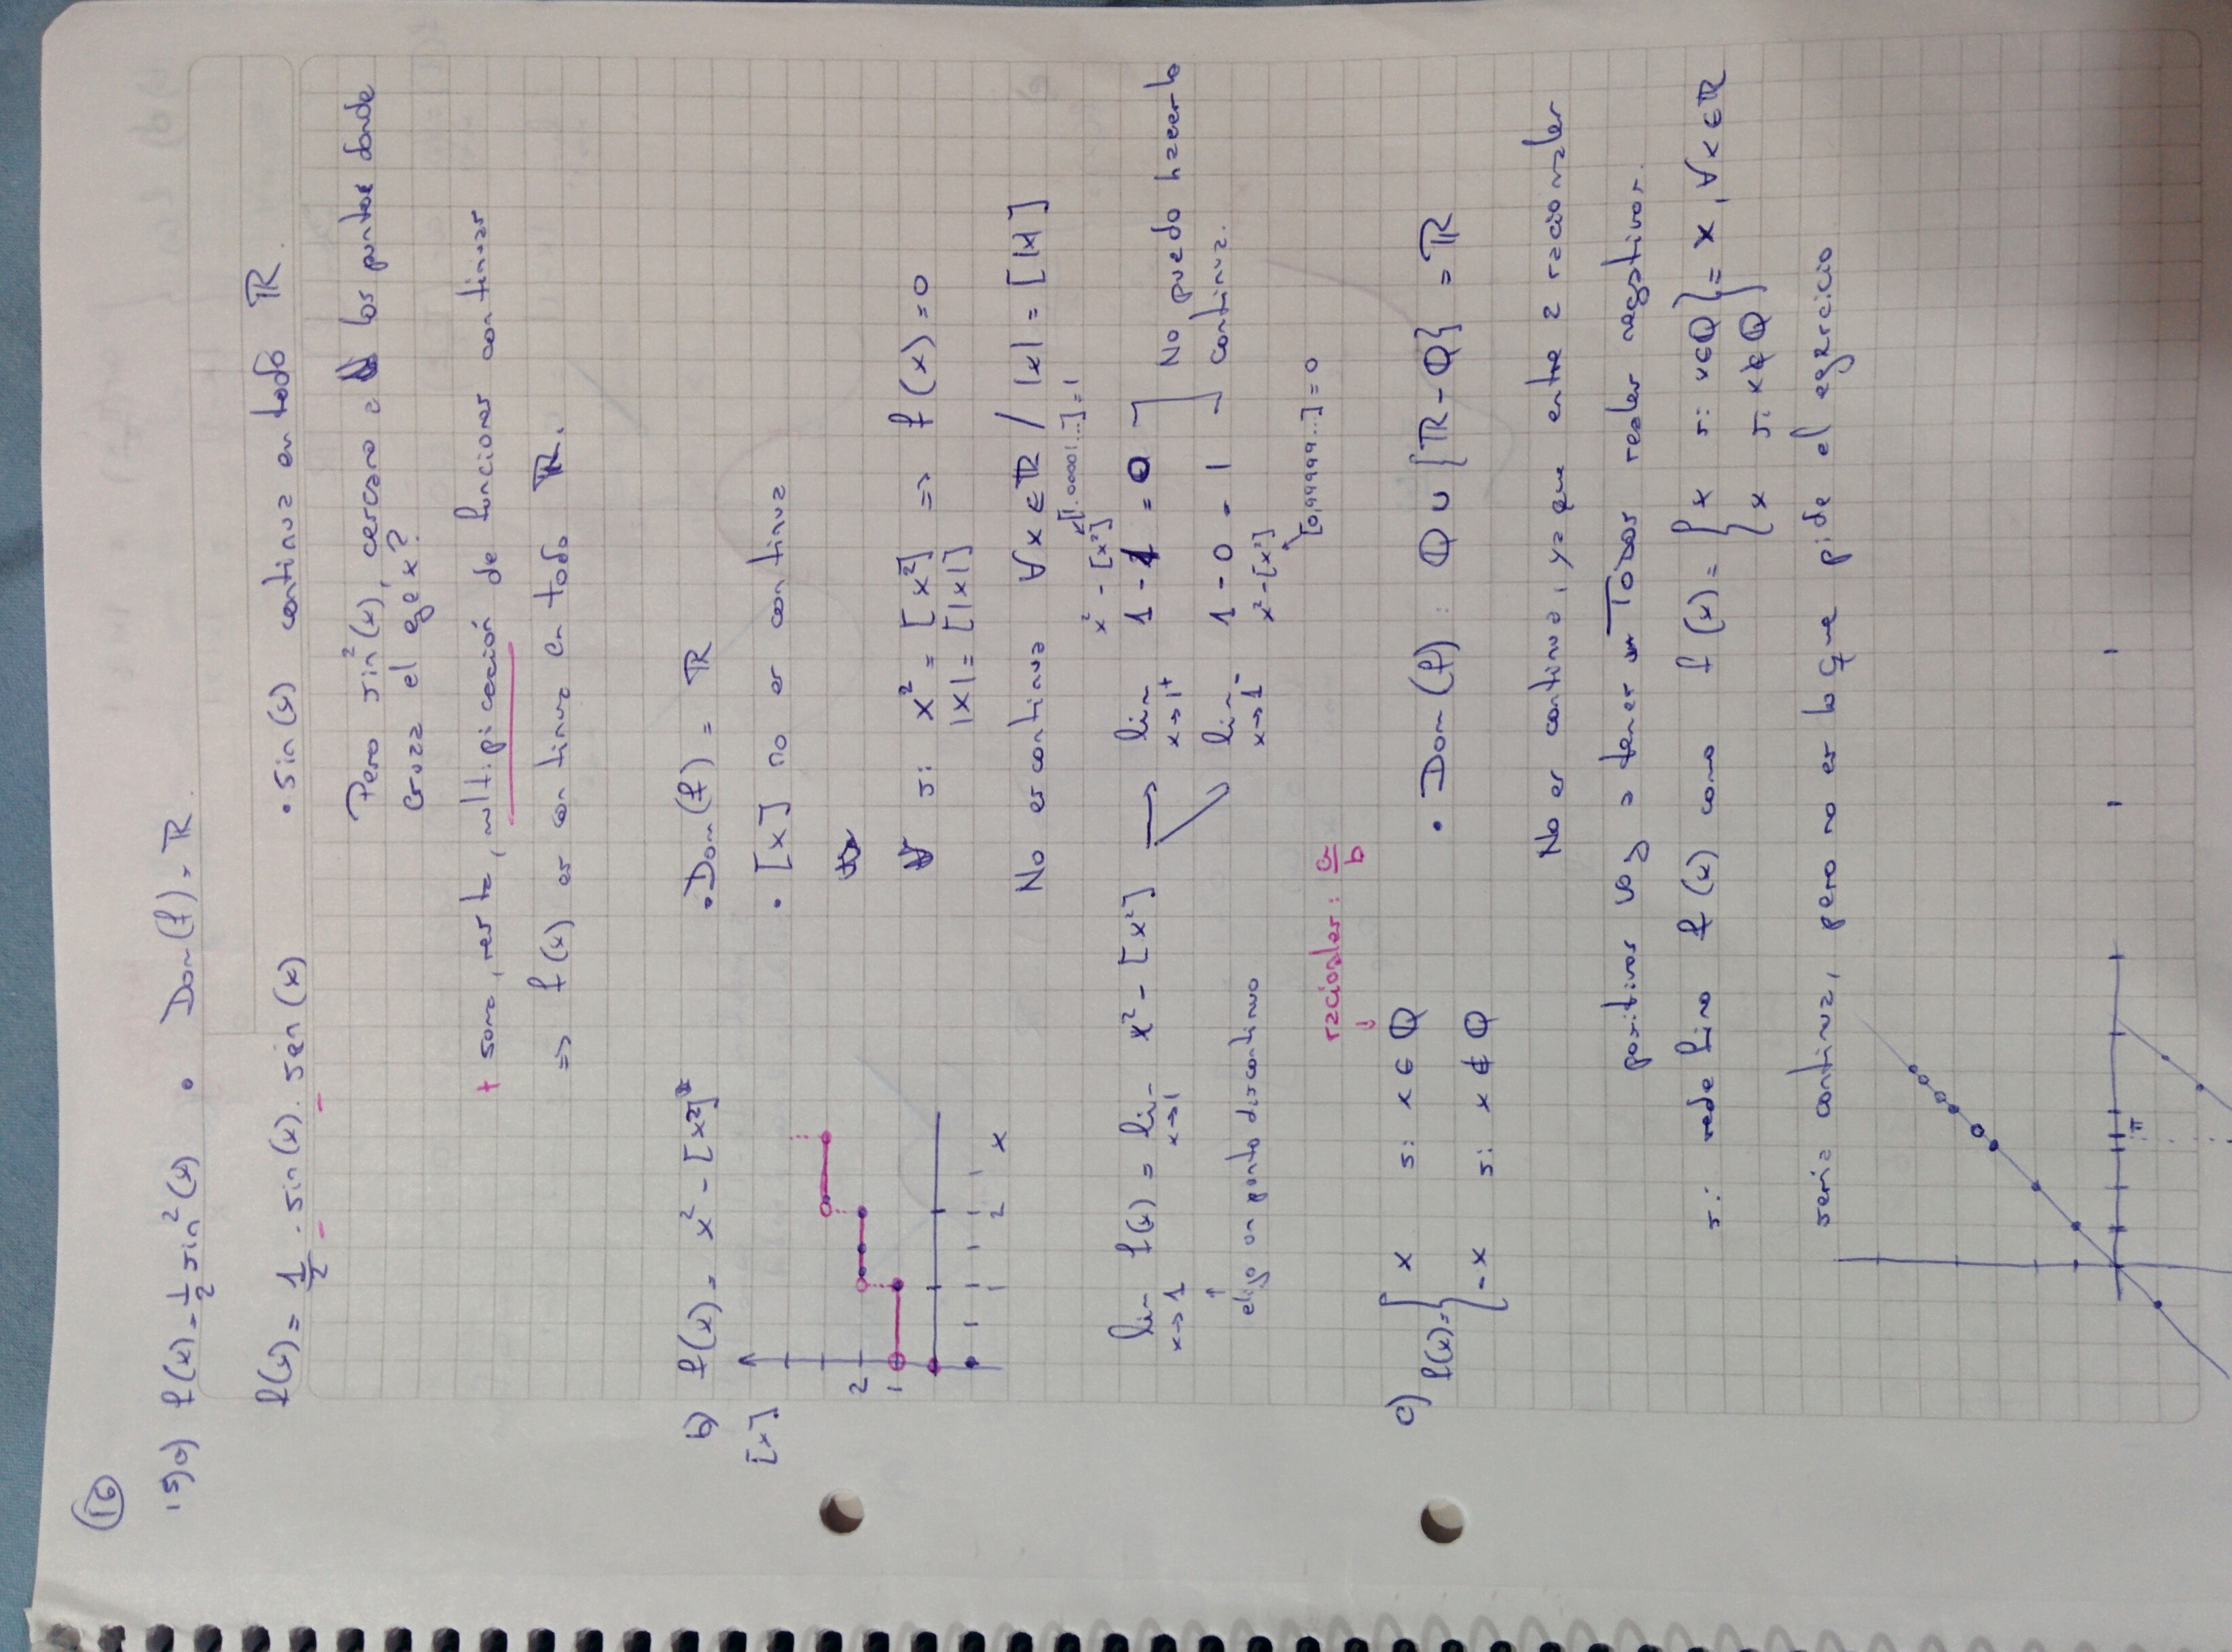 16
15)a) f(x) = 1/2 sin²(x) • Dom(f) = ℝ.
f(x) = 1/2 · sin(x) · sen(x) • sin(x) continua en todo ℝ.
Pero sin²(x), cercano a los puntos donde
cruza el eje x?
+ soma, resta, multipicación de funciones continuas
=> f(x) es continua en todo ℝ.
b) f(x) = x² - [x²] • Dom(f) = ℝ
[x] • [x] no es continua
2
1
si x² = [x²] => f(x) = 0
|x| = [|x|]
1 2 x
No es continua ∀x∈ℝ / |x| = [|x|]
[1.00001...] = 1
x² - [x²]
lim x→1 f(x) = lim x→1 x² - [x²] → lim x→1⁺ 1 - 1 = 0
No puedo hacerla
continua.
lim x→1⁻ 1 - 0 = 1
elijo un punto discontinuo
x² - [x²]
[0,99999...] = 0
racionales: a/b
c) f(x) = { x si x ∈ ℚ
-x si x ∉ ℚ
• Dom(f) : ℚ ∪ {ℝ-ℚ} = ℝ
No es continua, ya que entre 2 racionales
positivos voy a tener TODOS reales negativos.
si redefino f(x) como f(x) = { x si x∈ℚ } = x, ∀x∈ℝ
x si x∉ℚ
seria continua, pero no es lo que pide el egercicio
π